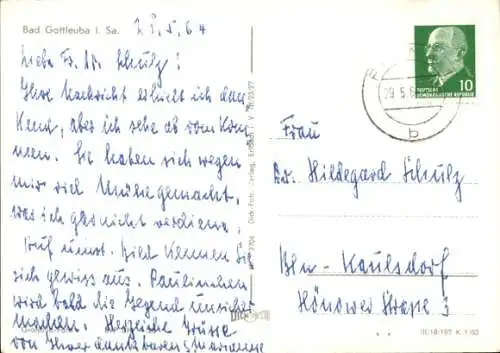 Bad Gottleuba i. Sa.
28.5.64
Liebe Fr. Dr. Schulz!
Ihre Nachricht erhielt ich dan-
kend, aber ich sehe ab vom Kom-
men. Sie haben sich wegen
mir viel Mühe gemacht,
was ich gar nicht verdiene.
Auf umst. Bild kennen Sie
sich gewiss aus. Paulinchen
wird bald die Gegend unsicher
machen. Herzliche Grüsse
von Ihrer dankbaren Marianne
10
DEUTSCHE
DEMOKRATISCHE REPUBLIK
29.5.6
b
Frau
Dr. Hildegard Schulz
Bln-Kaulsdorf
Hönower Straße 3
III/18/185 K 1/63